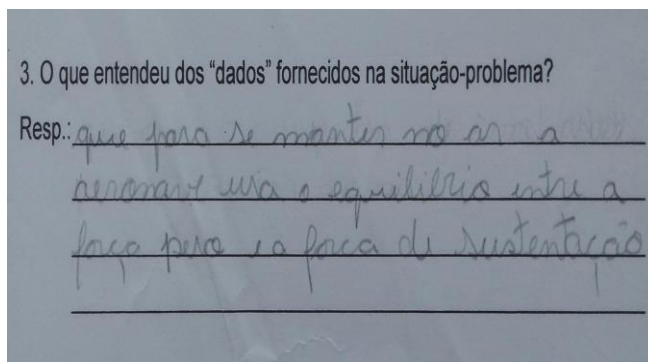 3. O que entendeu dos “dados” fornecidos na situação-problema?
Resp.: que para se manter no ar a
aeronave usa o equilibrio entre a
força peso e a força de sustentação